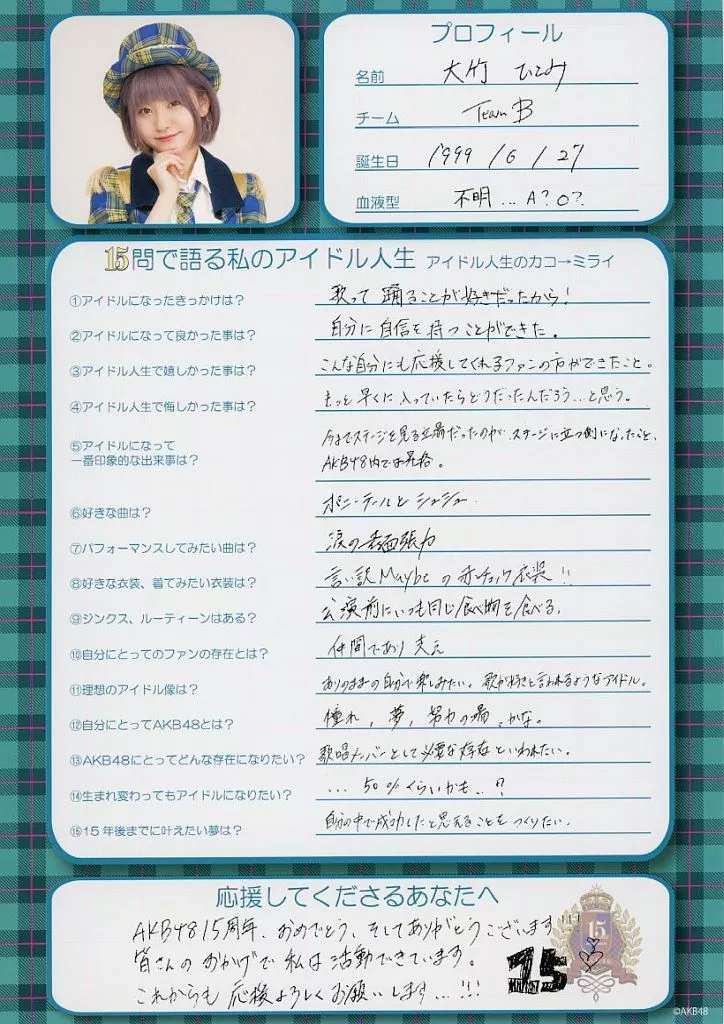 プロフィール
名前 大竹 ひとみ
チーム Team B
誕生日 1999 / 6 / 27
血液型 不明...A?O?
15問で語る私のアイドル人生 アイドル人生のカコ→ミライ
①アイドルになったきっかけは? 歌って踊ることが好きだったから!
②アイドルになって良かった事は? 自分に自信を持つことができた。
③アイドル人生で嬉しかった事は? こんな自分にも応援してくれるファンの方ができたこと。
④アイドル人生で悔しかった事は? もっと早くに入っていたらどうだったんだろう...と思う。
⑤アイドルになって
一番印象的な出来事は?
今までステージを見る立場だったのが、ステージに立つ側になったこと、
AKB48内では昇格。
⑥好きな曲は? ポニーテールとシュシュ
⑦パフォーマンスしてみたい曲は? 涙の表面張力
⑧好きな衣装、着てみたい衣装は? 言い訳Maybeの赤チェック衣装!!
⑨ジンクス、ルーティーンはある? 公演前にいつも同じ食べ物を食べる。
⑩自分にとってのファンの存在とは? 仲間であり支え
⑪理想のアイドル像は? ありのままの自分で楽しみたい。歌が好きと言われるようなアイドル。
⑫自分にとってAKB48とは? 憧れ、夢、努力の場、かな。
⑬AKB48にとってどんな存在になりたい? 歌唱メンバーとして必要な存在といわれたい。
⑭生まれ変わってもアイドルになりたい? ...50%くらいかも..!?
⑮15年後までに叶えたい夢は? 自分の中で成功したと思えることをつくりたい。
応援してくださるあなたへ
AKB48 15周年、おめでとう、そしてありがとうございます!!!
皆さんのおかげで私は活動できています。
これからも応援よろしくお願いします...!!!
15
15
©AKB48